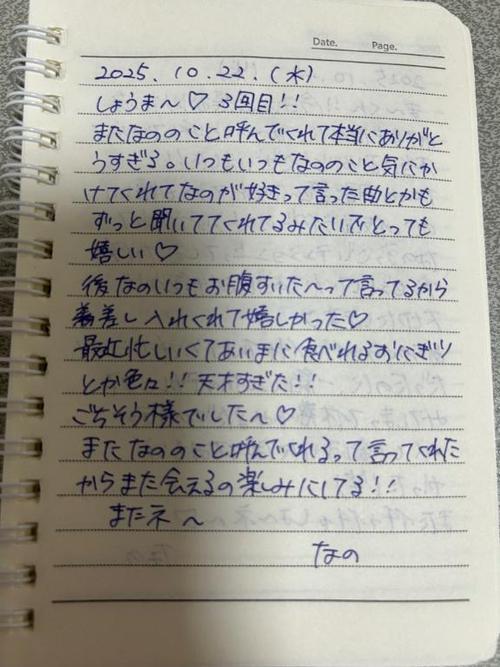 Date. Page.
2025. 10. 22. (水)
しょうま〜♡ 3回目!!
またなののこと呼んでくれて本当にありがと
うすぎる。いつもいつもなののこと気にか
けてくれてなのが好きって言った曲とかも
ずっと聞いててくれてるみたいでとっても
嬉しい♡
後なのいつもお腹すいた〜って言ってるから
差し入れくれて嬉しかった♡
最近忙しいくてあいまに食べれるおにぎり
とか色々!! 天才すぎた!!
ごちそう様でした〜♡
またなののこと呼んでくれるって言ってくれた
からまた会えるの楽しみにしてる!!
またネ〜
なの